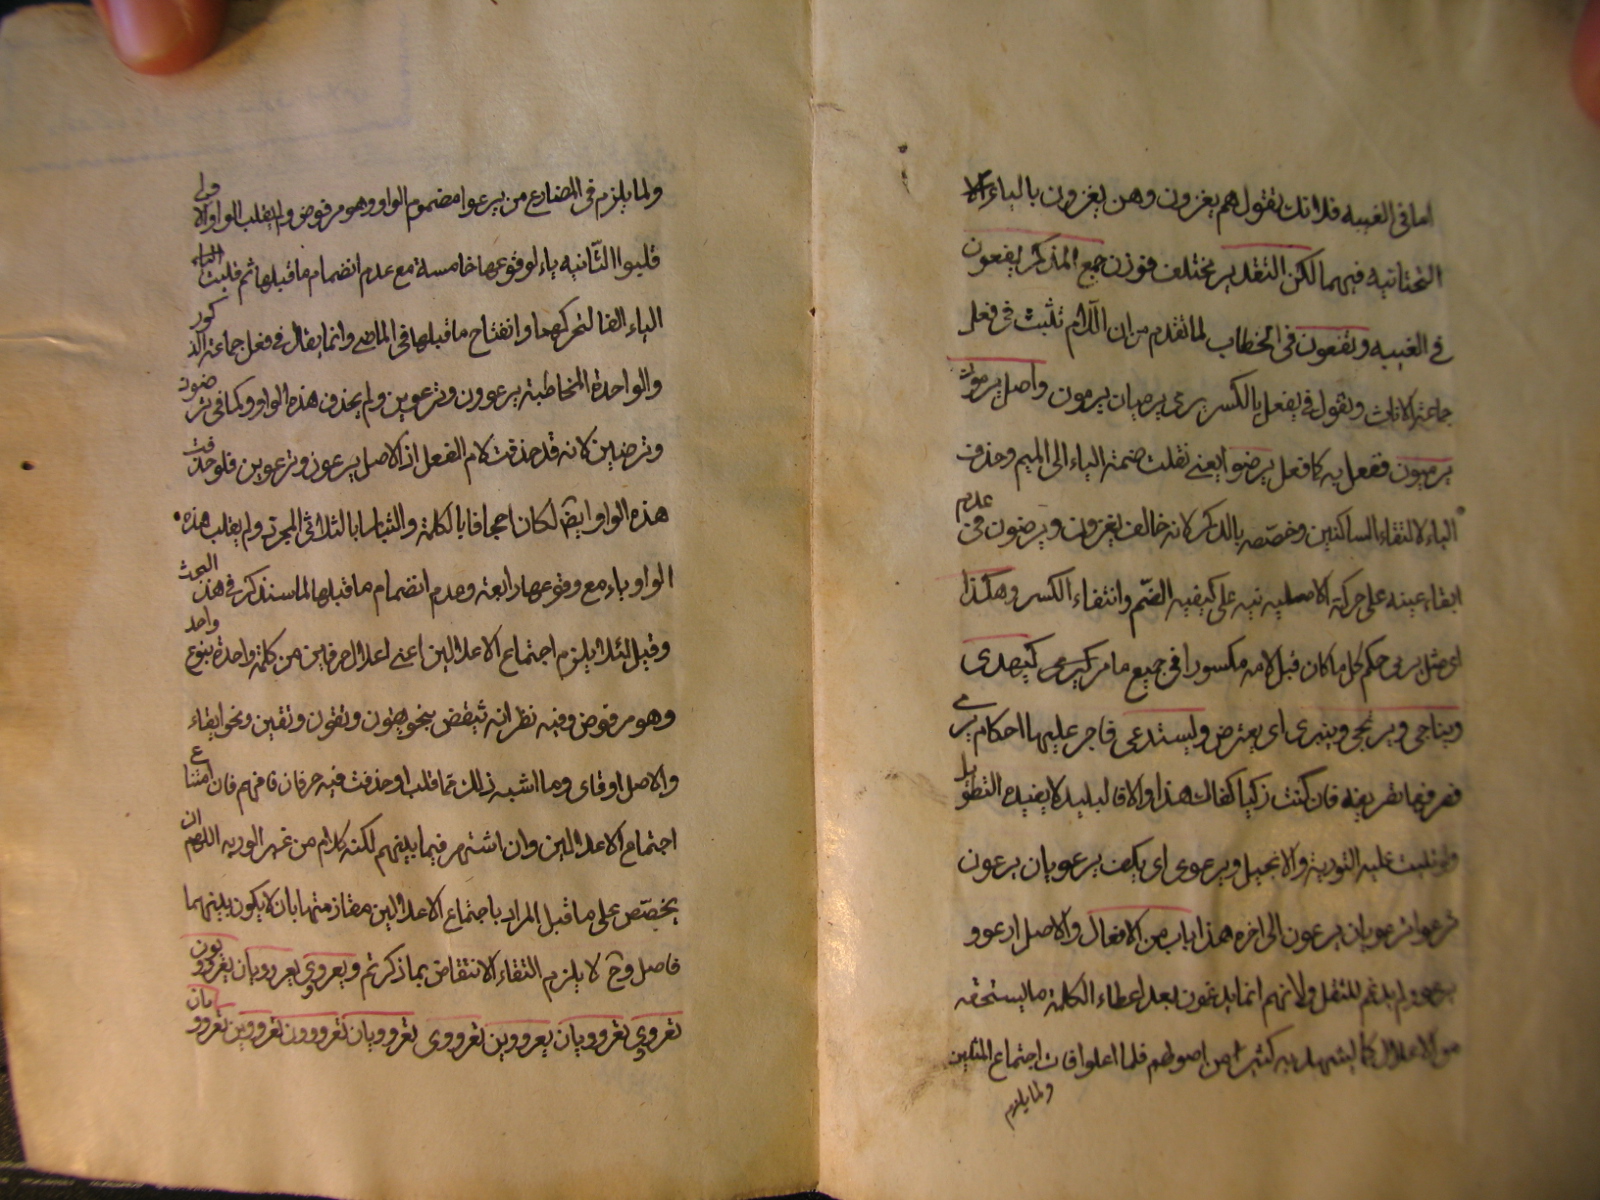 اما فى الغيبه فلانك تقول هم يغزون وهن يغزون بالياء
التحتانيه فيهما لكن التقدير مختلف فوزن جمع المذكر يفعون
فى الغيبه وتفعون فى الخطاب لما تقدم من ان اللام تثبت فى فعل
جماعة الاناث وتقول فى يفعل بالكسر يرمى يرميان يرمون واصل يرمون
يرميون ففعل به كما فعل يرضوا يعنى نقلت ضمة الياء الى الميم وحذفت
الياء لالتقاء الساكنين وخصّصه بالذكر لانه خالف يغزون ويرضون فى عدم
ابقاء عينه على حركة الاصليه نبه على كيفيه الضّم وانتفاء الكسر وهكذا
اى مثل يرمى حكم كل ما كان قبل لامه مكسورا فى جميع ما مر كيهدى
ويناجى ويرتجى وينبرى اى يعترض ويستدعى فاجر عليها احكام يرمى
فصرفها تصريفه فان كنت زكيا كفاك هذا والا فالبليد لا يفيده التطويل
ولو تليت عليه التورية والانجيل ويرعوى اى يكف يرعويان يرعون
ترعوا ترعويان يرعون الى اخره هذا باب من الافعال والاصل ارعوو
يرعوو ولم يدغم للثقل ولانهم انما يدغمون بعد اعطاء الكلمة ما يستحقه
من الاعلال كما يشهد به كثير من اصولهم فلما اعلوا فات اجتماع المثلين
ولما يلزم
ولما يلزم فى المضارع من يرعوا مضموم الواو وهو مرفوض ولم يقلب الواو الاولى
قلبوا الثّانيه ياء لوقوعها خامسة مع عدم انضمام ما قبلها ثم قلبت الياء
الياء الفا لتحركها وانفتاح ما قبلها فى الماضى وانما يقال فى فعل جماعة الذكور
والواحدة المخاطبة يرعوون وترعوين ولم يحذف هذه الواو كما فى ترضون
وترضين لانه قد حذفت لام الفعل اذ الاصل يرعوون وترعوين فلو حذفت
هذه الواو ايضا لكان اجحافا بالكلمة والتباسا بالثلاثى المجرد ولم يقلب هذه
الواو ياء مع وقوعها رابعة وعدم انضمام ما قبلها لما سنذكر فى هذا البحث
وقيل لئلا يلزم اجتماع الاعلالين اعنى اعلال حرفين من كلمة واحدة بنوع واحد
وهو مرفوض وفيه نظر لانه ينقض بنحو يقون وتقون وتقين ونحو ايقاء
والاصل اوقاى وما اشبه ذلك مما قلب او حذفت فيه حرفان فافهم فان امتناع
اجتماع الاعلالين وان اشتهر فيما بينهم لكنه كلام من غير الرويه اللهم ان
يخصّص على ما قيل المراد باجتماع الاعلالين مقارنتهما بان لا يكون بينهما
فاصل وح لا يلزم التقاء الانتقاض بما ذكرتم ويعروى يعروريان يعرورون
تعرورى تعروريان يعرورين تعرورى تعروريان تعرورون تعرورين تعروريان